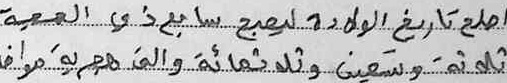 اصلح تاريخ الولادة ليصبح سابع ذي الحجة
ثلاثة وتسعين وثلاثمائة والف هجرية موافق